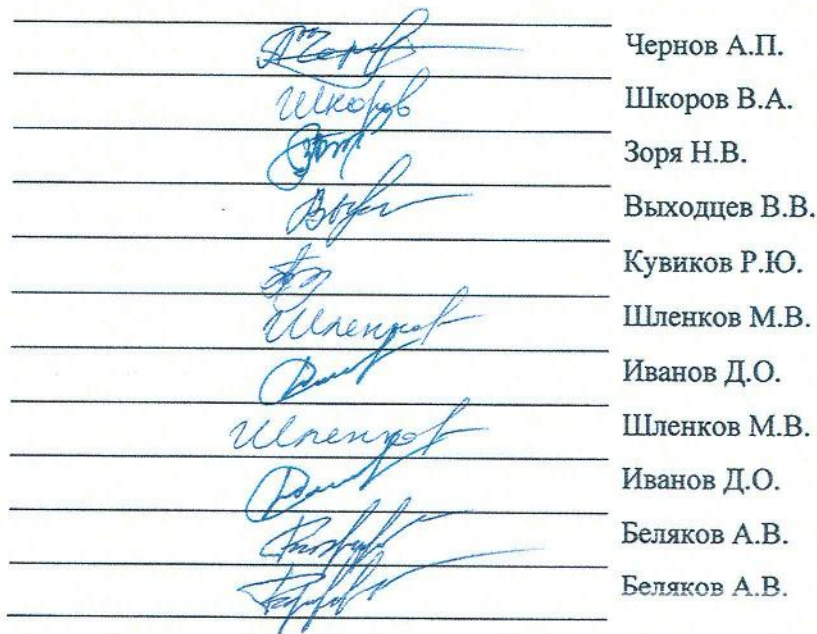 Чернов А.П.
Шкоров Шкоров В.А.
Зоря Н.В.
Выходцев В.В.
Кувиков Р.Ю.
Шленков Шленков М.В.
Иванов Д.О.
Шленков Шленков М.В.
Иванов Д.О.
Беляков А.В.
Беляков А.В.